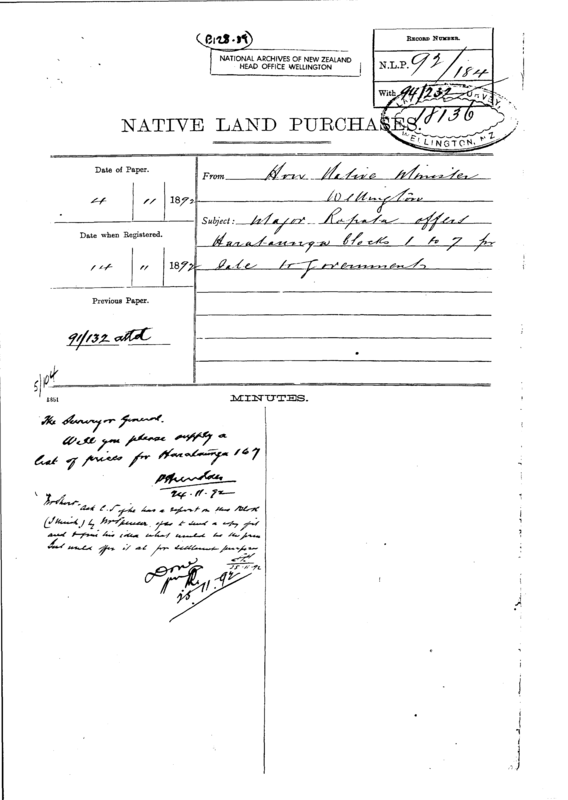 B128-89
NATIONAL ARCHIVES OF NEW ZEALAND
HEAD OFFICE WELLINGTON
RECORD NUMBER.
N.L.P. 92/184
With 94/232
18136
WELLINGTON, NZ
NATIVE LAND PURCHASES.
Date of Paper.
4 11 1892
Date when Registered.
14 11 1892
Previous Paper.
91/132 attd
5/104
From Hon Native Minister
Wellington
Subject: Major Ropata offers
Harataunga blocks 1 to 7 for
Sale to Government
MINUTES.
The Surveyor General.
Will you please supply a
list of prices for Harataunga 1 to 7
24.11.92
ask C.S. if he has a report on this Block
(I think) by Mr Spencer, if so to send a copy
and his idea what would be the price
Govt would offer it at for settlement purposes
25.11.92
Done
25.11.92